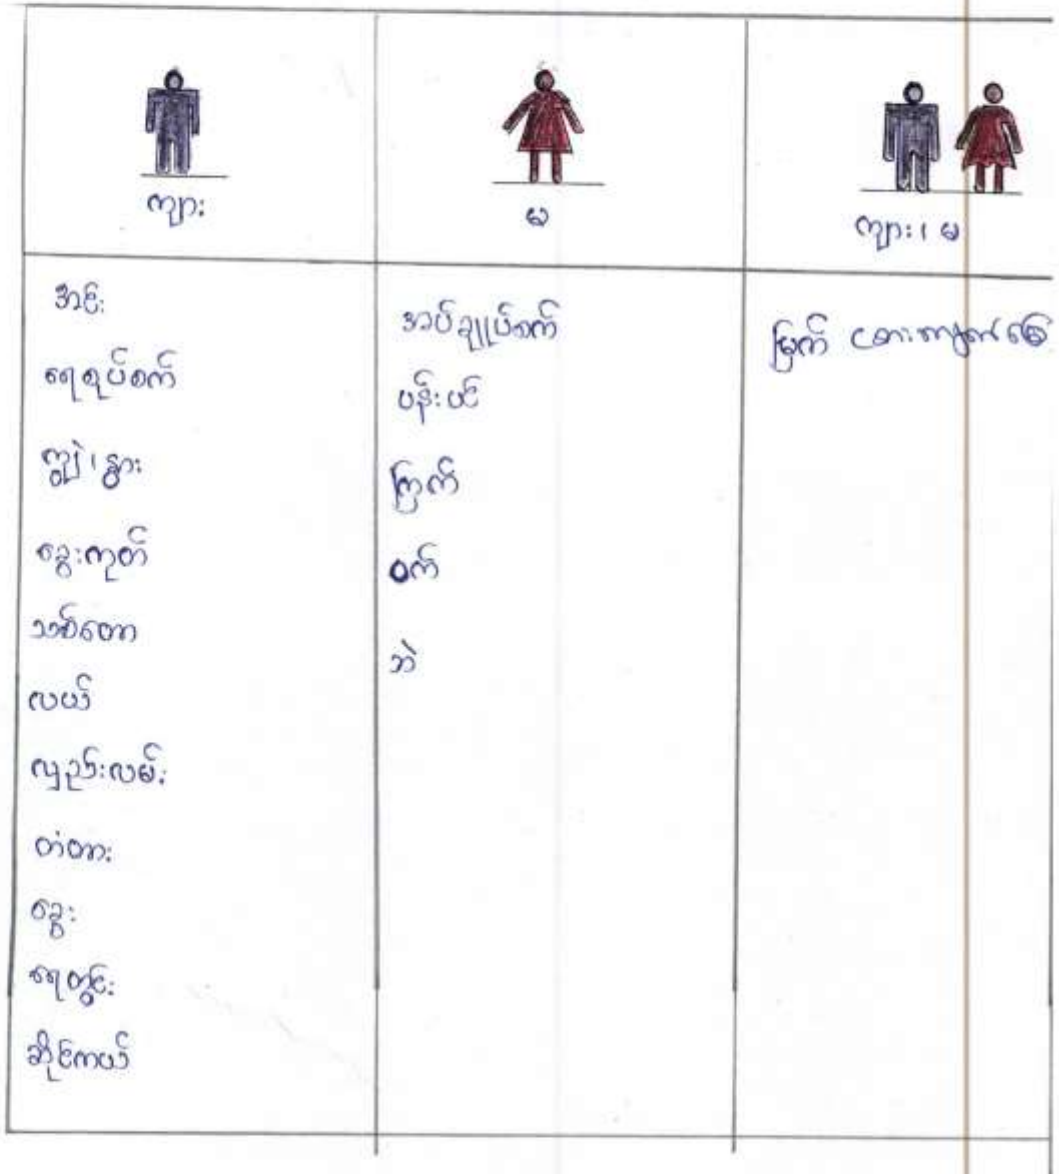 ကျား
မ
ကျား၊ မ
အင်း
ရေစုပ်စက်
ကျွဲ၊ နွား
ခွေးကုတ်
သစ်တော
လယ်
လှည်းလမ်း
တံတား
ခွေး
ရေတွင်း
ဆိုင်ကယ်
အပ်ချုပ်စက်
ပန်းပင်
ကြက်
ဝက်
ဘဲ
မြက်